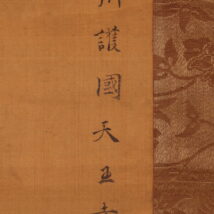 護國天王寺